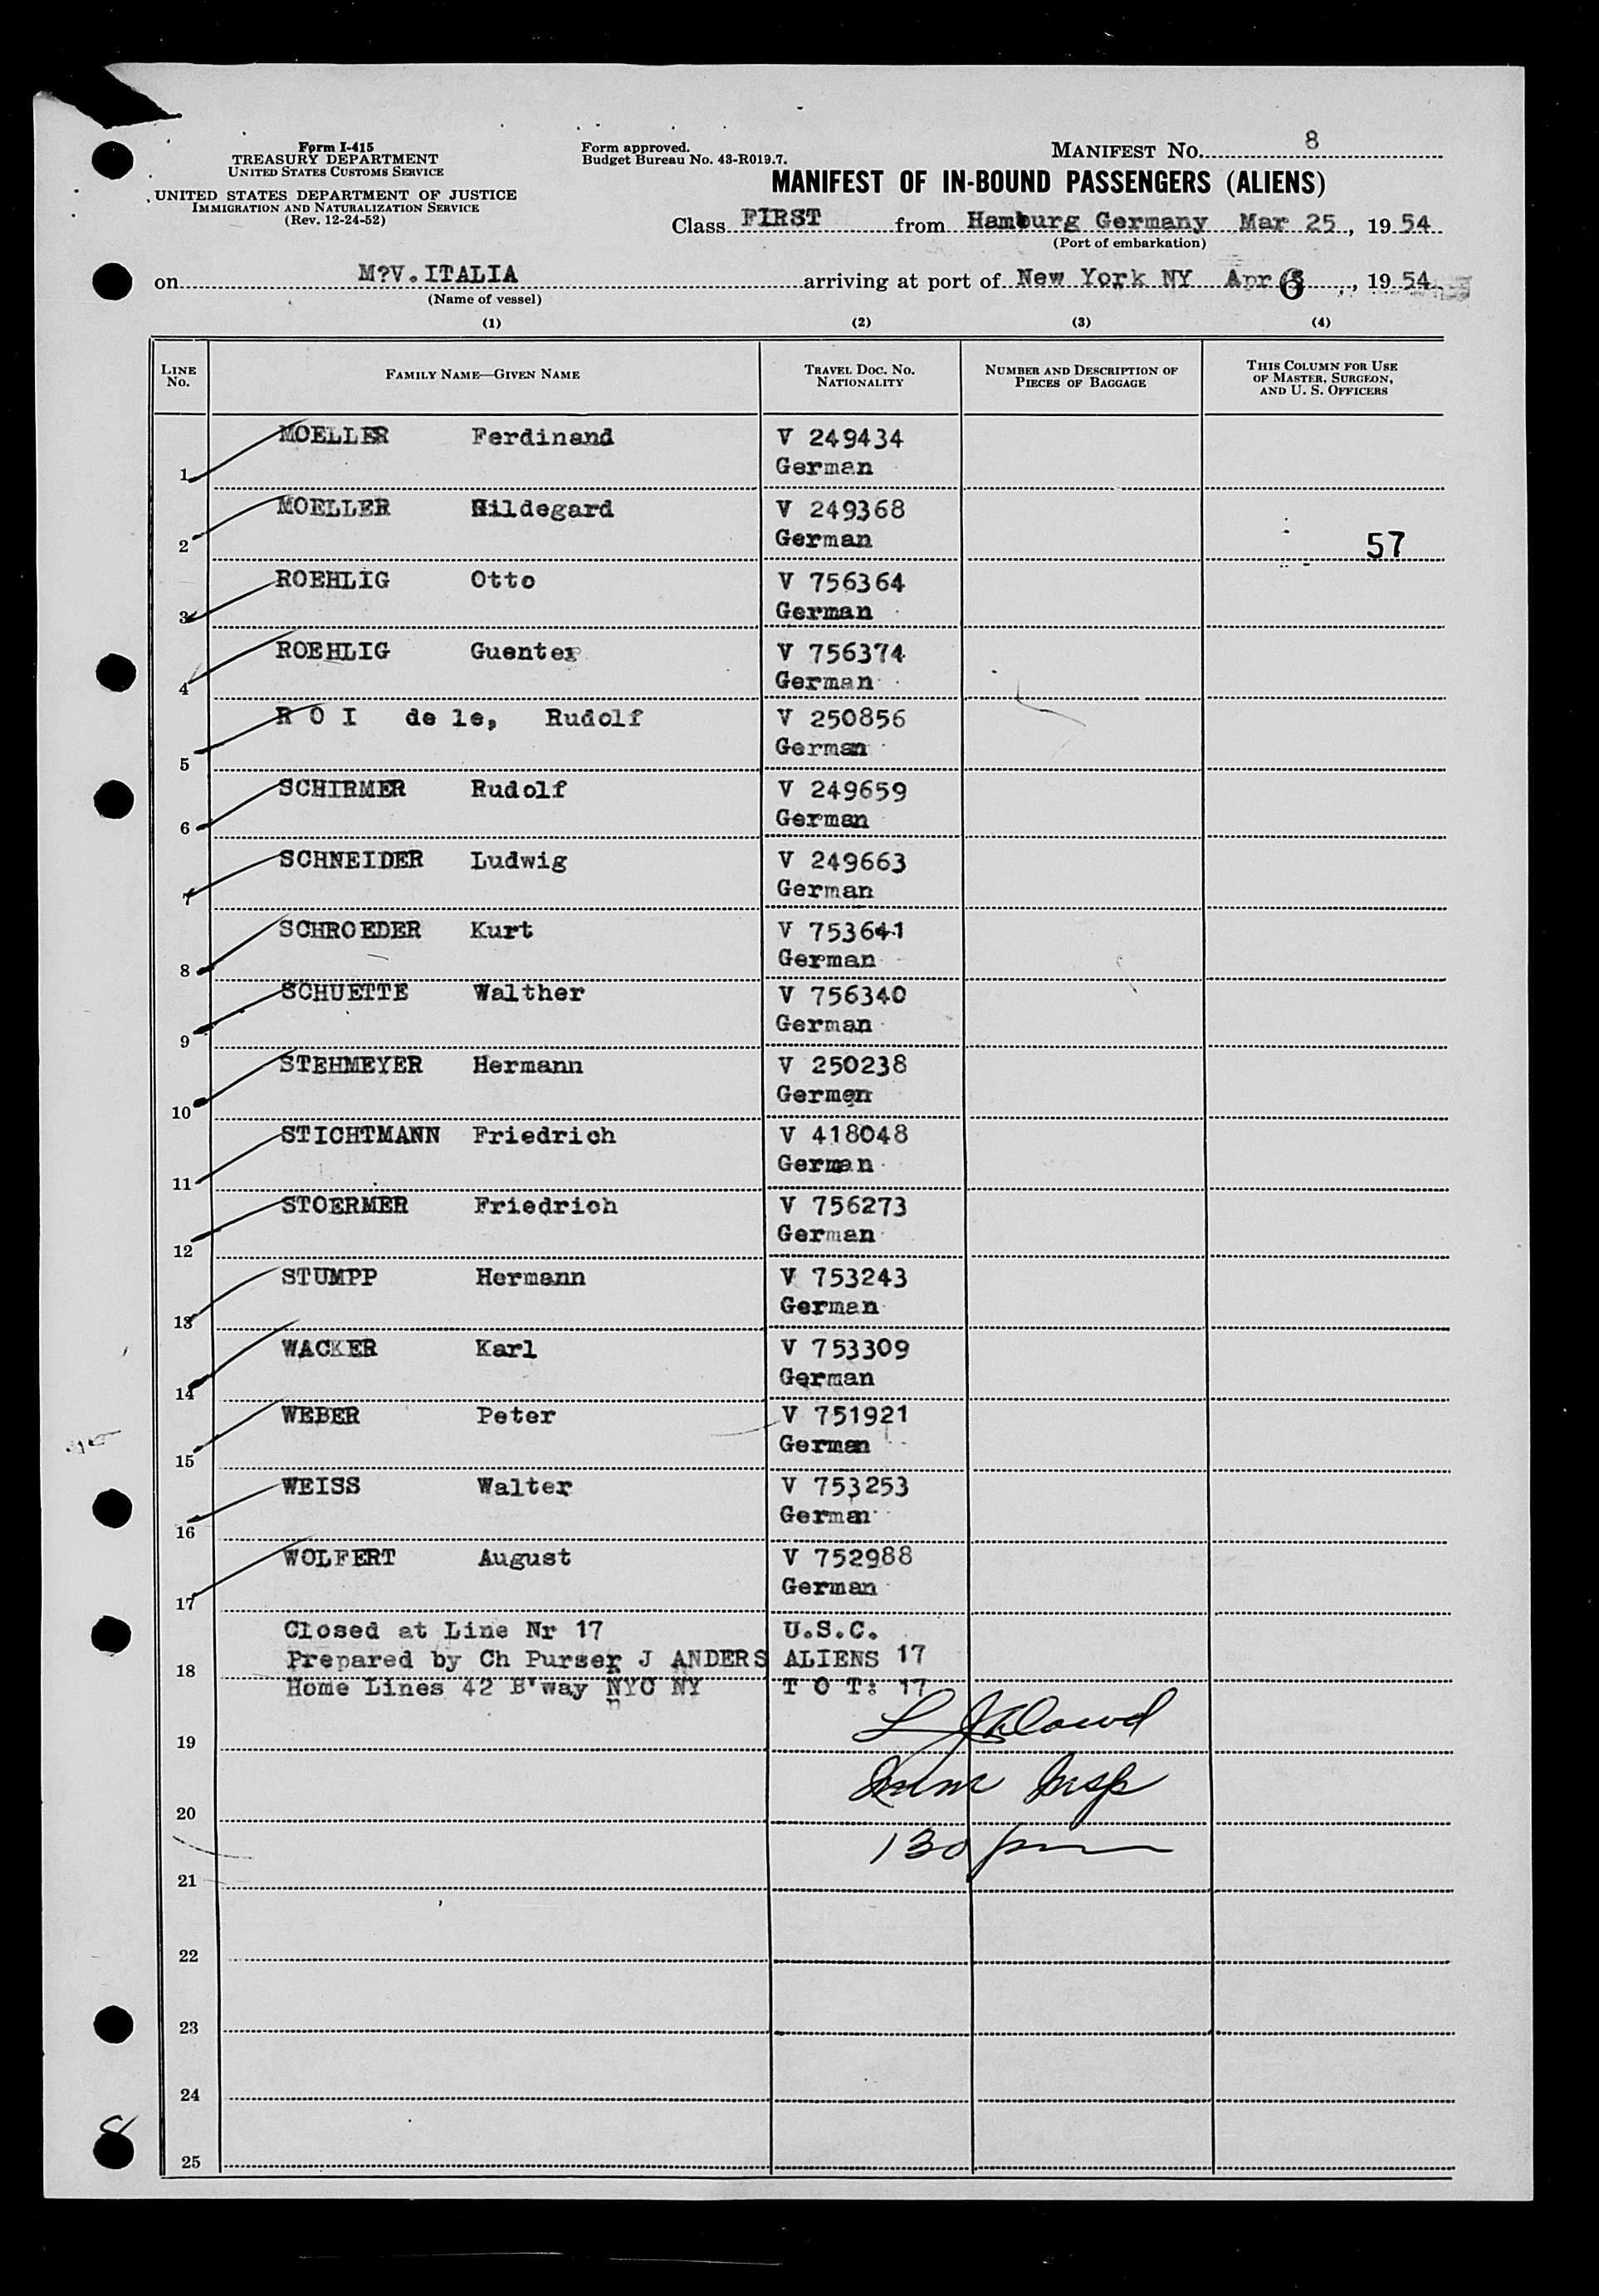 Form I-415
TREASURY DEPARTMENT
UNITED STATES CUSTOMS SERVICE
UNITED STATES DEPARTMENT OF JUSTICE
IMMIGRATION AND NATURALIZATION SERVICE
(Rev. 12-24-52)
Form approved.
Budget Bureau No. 43-R019.7.
MANIFEST NO. 8
MANIFEST OF IN-BOUND PASSENGERS (ALIENS)
Class FIRST from Hamburg Germany Mar 25, 19 54
(Port of embarkation)
on M?V.ITALIA arriving at port of New York NY Apr 6, 19 54
(Name of vessel)
(1) (2) (3) (4)
LINE NO. FAMILY NAME—GIVEN NAME TRAVEL DOC. NO. NATIONALITY NUMBER AND DESCRIPTION OF PIECES OF BAGGAGE THIS COLUMN FOR USE OF MASTER, SURGEON, AND U. S. OFFICERS
1 MOELLER Ferdinand V 249434
German
2 MOELLER Hildegard V 249368
German 57
3 ROEHLIG Otto V 756364
German
4 ROEHLIG Guenter V 756374
German
5 R O I de le, Rudolf V 250856
German
6 SCHIRMER Rudolf V 249659
German
7 SCHNEIDER Ludwig V 249663
German
8 SCHROEDER Kurt V 753641
German
9 SCHUETTE Walther V 756340
German
10 STEHMEYER Hermann V 250238
German
11 STICHTMANN Friedrich V 418048
German
12 STOERMER Friedrich V 756273
German
13 STUMPP Hermann V 753243
German
14 WACKER Karl V 753309
German
15 WEBER Peter V 751921
German
16 WEISS Walter V 753253
German
17 WOLFERT August V 752988
German
Closed at Line Nr 17 U.S.C.
18 Prepared by Ch Purser J ANDERS ALIENS 17
Home Lines 42 B'way NYC NY T O T: 17
19
Imm Insp
20
130 pm
21
22
23
24
25
8